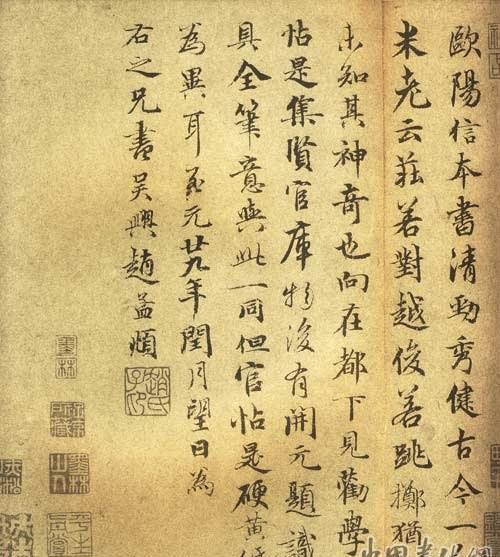 歐陽信本書清勁秀健古今一
米老云莊若對越俊若跳擲猶
未知其神奇也向在都下見勸學
帖是集賢官庫物後有開元題識
具全筆意與此一同但官帖是硬黃
為異耳至元廿九年閏月望日為
右之兄書吳興趙孟頫
趙氏子昂
墨林